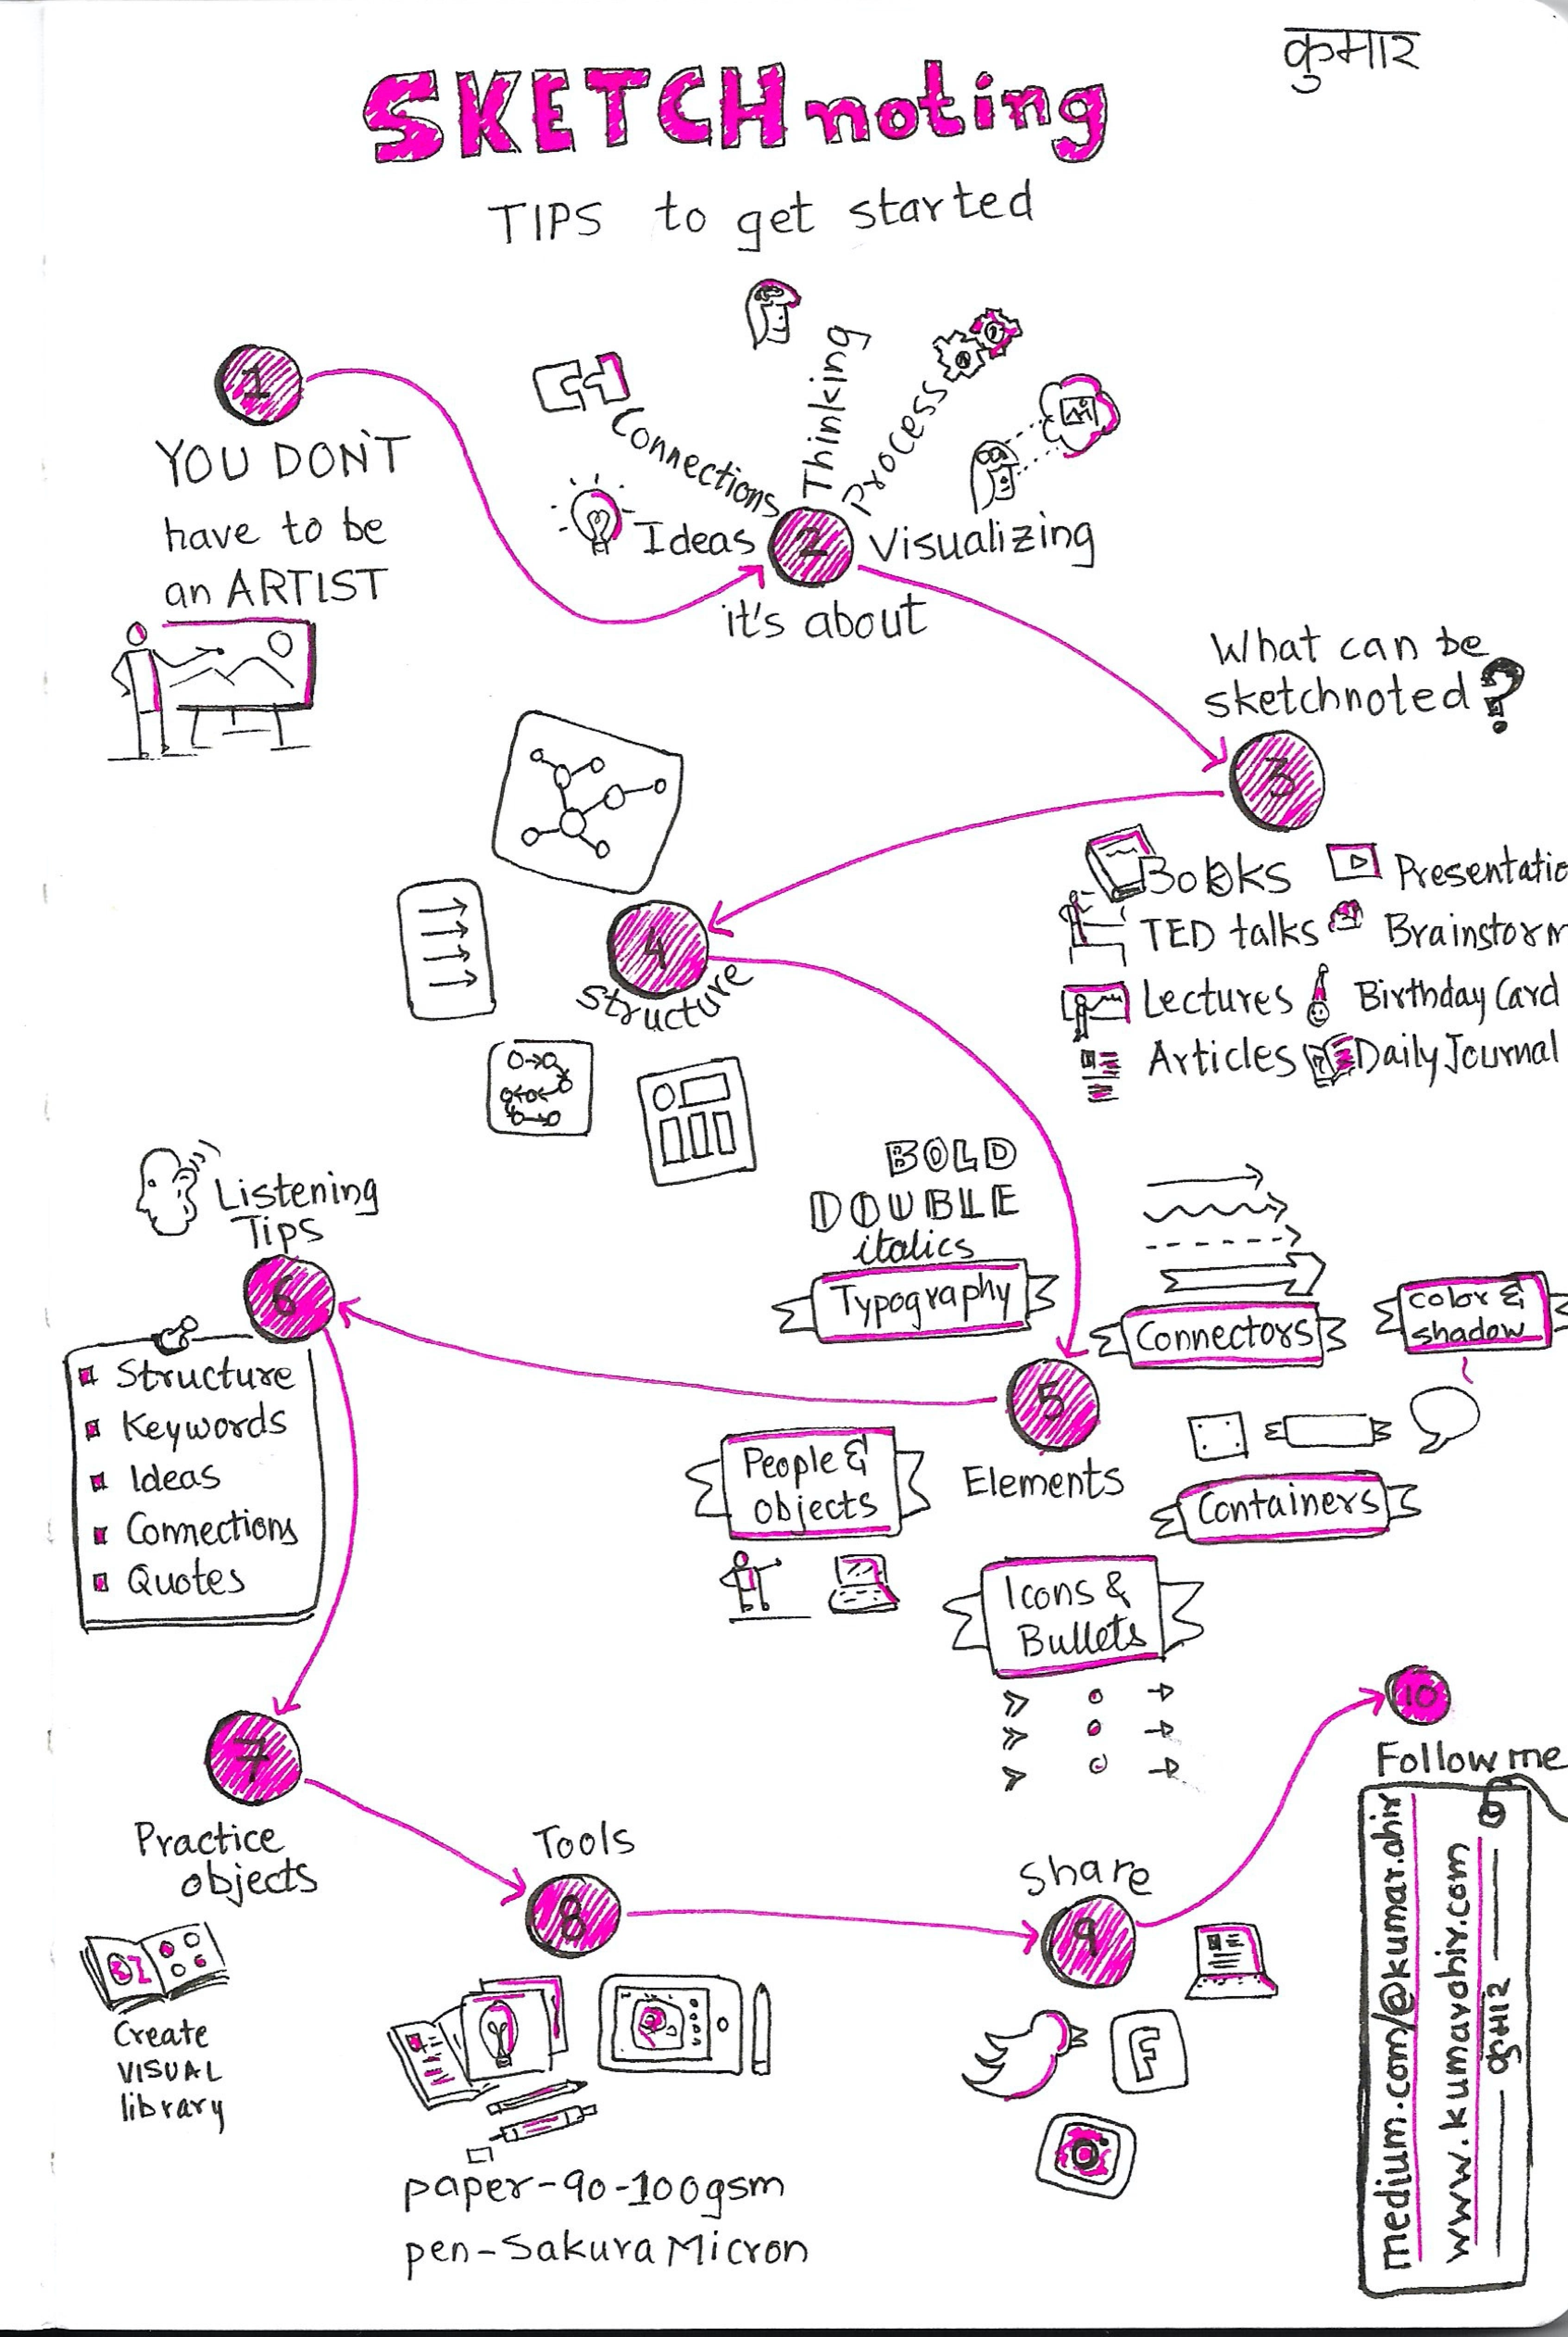 कुमार
SKETCHnoting
TIPS to get started
1
YOU DON'T
have to be
an ARTIST
Ideas
Connections
Thinking
Process
Visualizing
2
it's about
What can be
sketchnoted?
3
Books
Presentatio
TED talks
Brainstorm
Lectures
Birthday Card
Articles
Daily Journal
4
Structure
BOLD
DOUBLE
italics
Typography
Connectors
color &
shadow
5
Elements
People &
objects
Containers
Icons &
Bullets
Listening
Tips
6
Structure
Keywords
Ideas
Connections
Quotes
7
Practice
objects
Create
VISUAL
library
Tools
8
paper-90-100gsm
pen-Sakura Micron
Share
9
F
10
Follow me
medium.com/@kumar.ahir
www.kumarahir.com
कुमार